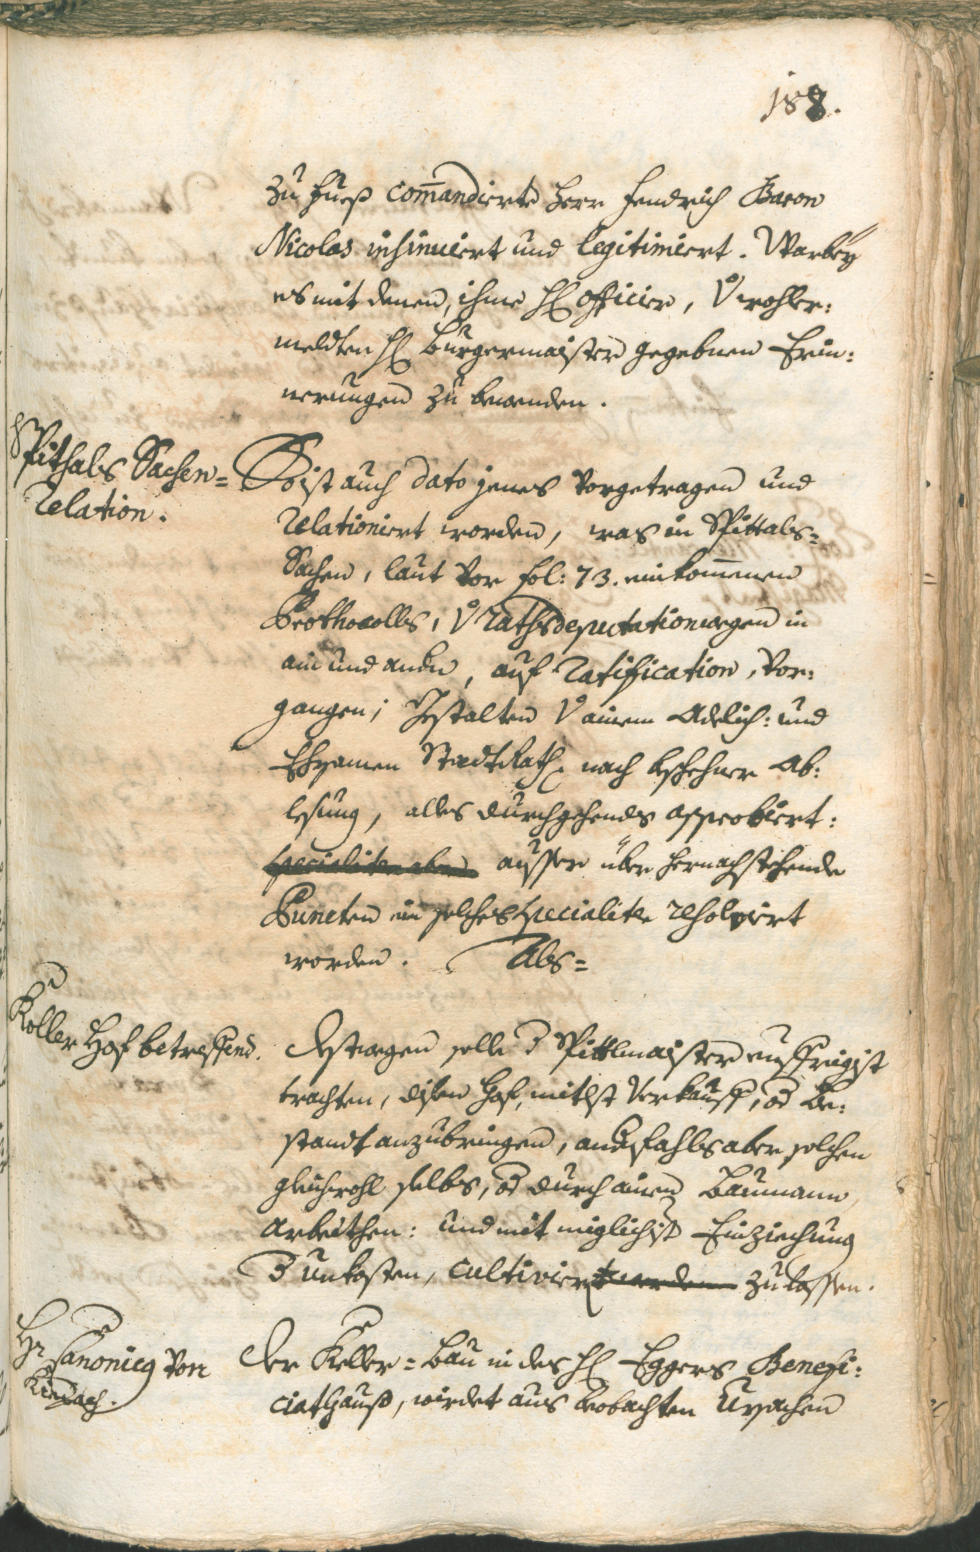 188.
zu Fueß commandierte Herr Fendrich Baron
Nicolas insinuiert und legitimiert. Warbey
es mit denen, ihme H: Officier, V: wohler:
meldten H: Burgermaister gegebnen Erin:
nerungen zu bewenden.
Spithals Sachen=
Relation.
So ist auch dato jenes vorgetragen und
relationiert worden, was in Spittals=
Sachen, laut vor fol: 73. einkommenen
Prothocolls, V: Rathsdeputationwegen in
ain und andern, auf Ratification, vor:
gangen; Gestalten V: ainem Adelich: und
Ehrsamen Stadt Rath, nach beschehner Ab:
lesung, alles durchgehends approbiert:
specialiter aber ausser über hernachstehende
Puncten ein solches specialiter resolviert
worden. Als=
Koller Hof betreffend.
Destwegen solle d: Spittlmaister eyffrigist
trachten, disen Hof, mitlst Verkauff, od: Be:
standt anzubringen, andersfahls aber solchen
gleichwohl selbs, od: durch ainen Baumann
arbeithen: und mit miglichist Einziechung
d: Unkosten, cultiviert werden zu lassen.
Hr: Canonicus von
Kirchach.
Der Keller=Bau in des H: Eggers Benefi:
ciathauß, wirdet aus beobachten Ursachen